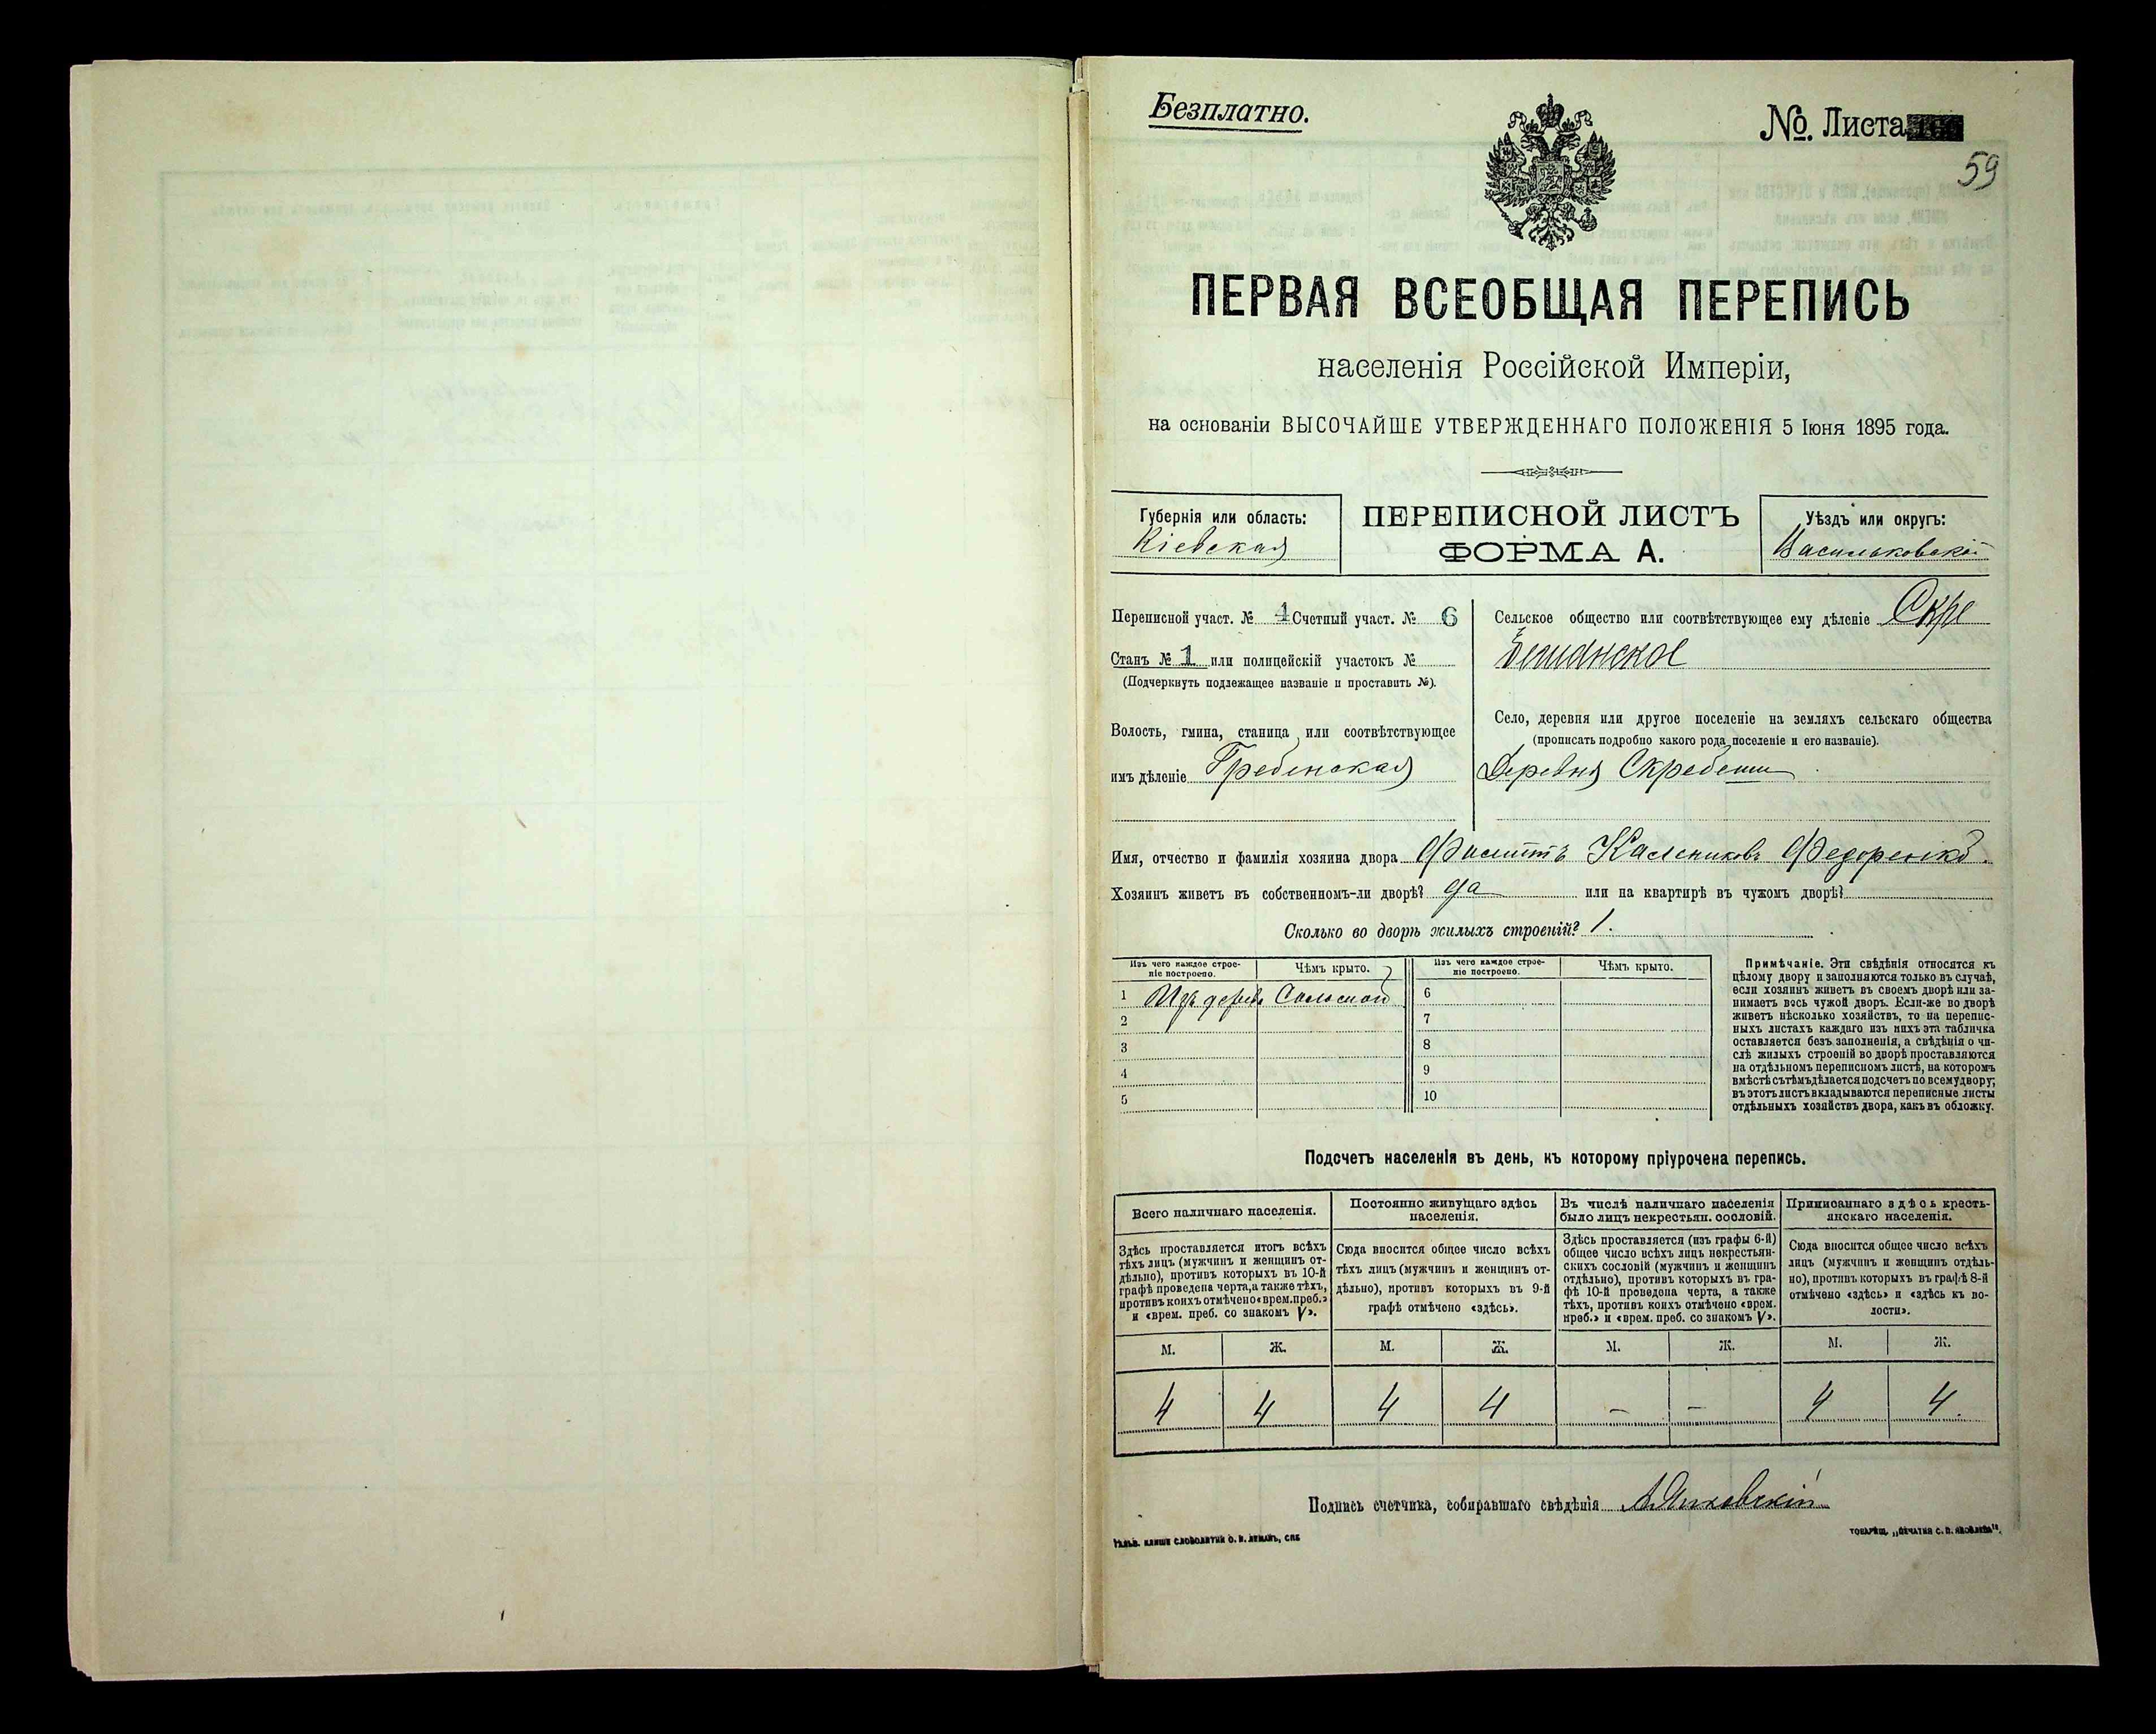 Безплатно.
№. Листа
59
ПЕРВАЯ ВСЕОБЩАЯ ПЕРЕПИСЬ
населенія Россійской Имперіи,
на основаніи ВЫСОЧАЙШЕ УТВЕРЖДЕННАГО ПОЛОЖЕНІЯ 5 Іюня 1895 года.
Губернія или область:
Кіевская
ПЕРЕПИСНОЙ ЛИСТЪ
ФОРМА А.
Уѣздъ или округъ:
Васильковскій
Переписной участ. № 4 Счетный участ. № 6
Станъ № 1 или полицейскій участокъ №
(Подчеркнуть подлежащее названіе и проставить №).
Волость, гмина, станица или соотвѣтствующее
имъ дѣленіе Гребенская
Сельское общество или соотвѣтствующее ему дѣленіе Скре
бешанское
Село, деревня или другое поселеніе на земляхъ сельскаго общества
(прописать подробно какого рода поселеніе и его названіе).
Деревня Скребеши
Имя, отчество и фамилія хозяина двора Филиппъ Калениковъ Федоренко.
Хозяинъ живетъ въ собственномъ-ли дворѣ? да или на квартирѣ въ чужомъ дворѣ?
Сколько во дворѣ жилыхъ строеній? 1.
Изъ чего каждое строе-
ніе построено.
Чѣмъ крыто.
Изъ чего каждое строе-
ніе построено.
Чѣмъ крыто.
1 Изъ дерева Соломой 6
2 7
3 8
4 9
5 10
Примѣчаніе. Эти свѣдѣнія относятся къ
цѣлому двору и заполняются только въ случаѣ,
если хозяинъ живетъ въ своемъ дворѣ или за-
нимаетъ весь чужой дворъ. Если-же во дворѣ
живетъ нѣсколько хозяйствъ, то на перепис-
ныхъ листахъ каждаго изъ нихъ эта табличка
оставляется безъ заполненія, а свѣдѣнія о чи-
слѣ жилыхъ строеній во дворѣ проставляются
на отдѣльномъ переписномъ листѣ, на которомъ
вмѣстѣ съ тѣмъ дѣлается подсчетъ по всему двору;
въ этотъ листъ вкладываются переписные листы
отдѣльныхъ хозяйствъ двора, какъ въ обложку.
Подсчетъ населенія въ день, къ которому пріурочена перепись.
Всего наличнаго населенія.
Здѣсь проставляется итогъ всѣхъ
тѣхъ лицъ (мужчинъ и женщинъ от-
дѣльно), противъ которыхъ въ 10-й
графѣ проведена черта, а также тѣхъ,
противъ коихъ отмѣчено «врем. преб.»
и «врем. преб. со знакомъ V».
Постоянно живущаго здѣсь
населенія.
Сюда вносится общее число всѣхъ
тѣхъ лицъ (мужчинъ и женщинъ от-
дѣльно), противъ которыхъ въ 9-й
графѣ отмѣчено «здѣсь».
Въ числѣ наличнаго населенія
было лицъ некрестьян. сословій.
Здѣсь проставляется (изъ графы 6-й)
общее число всѣхъ лицъ некрестьян-
скихъ сословій (мужчинъ и женщинъ
отдѣльно), противъ которыхъ въ гра-
фѣ 10-й проведена черта, а также
тѣхъ, противъ коихъ отмѣчено «врем.
преб.» и «врем. преб. со знакомъ V».
Приписаннаго здѣсь кресть-
янскаго населенія.
Сюда вносится общее число всѣхъ
лицъ (мужчинъ и женщинъ отдѣль-
но), противъ которыхъ въ графѣ 8-й
отмѣчено «здѣсь» и «здѣсь къ во-
лости».
М. Ж. М. Ж. М. Ж. М. Ж.
4 4 4 4 – – 4 4.
Подпись счетчика, собиравшаго свѣдѣнія
ГАЛЬВ. КЛИШЕ СЛОВОЛИТНИ О. И. ЛЕМАНЪ, СПБ
ТОВАРИЩ. „ПЕЧАТНЯ С. П. ЯКОВЛЕВА".